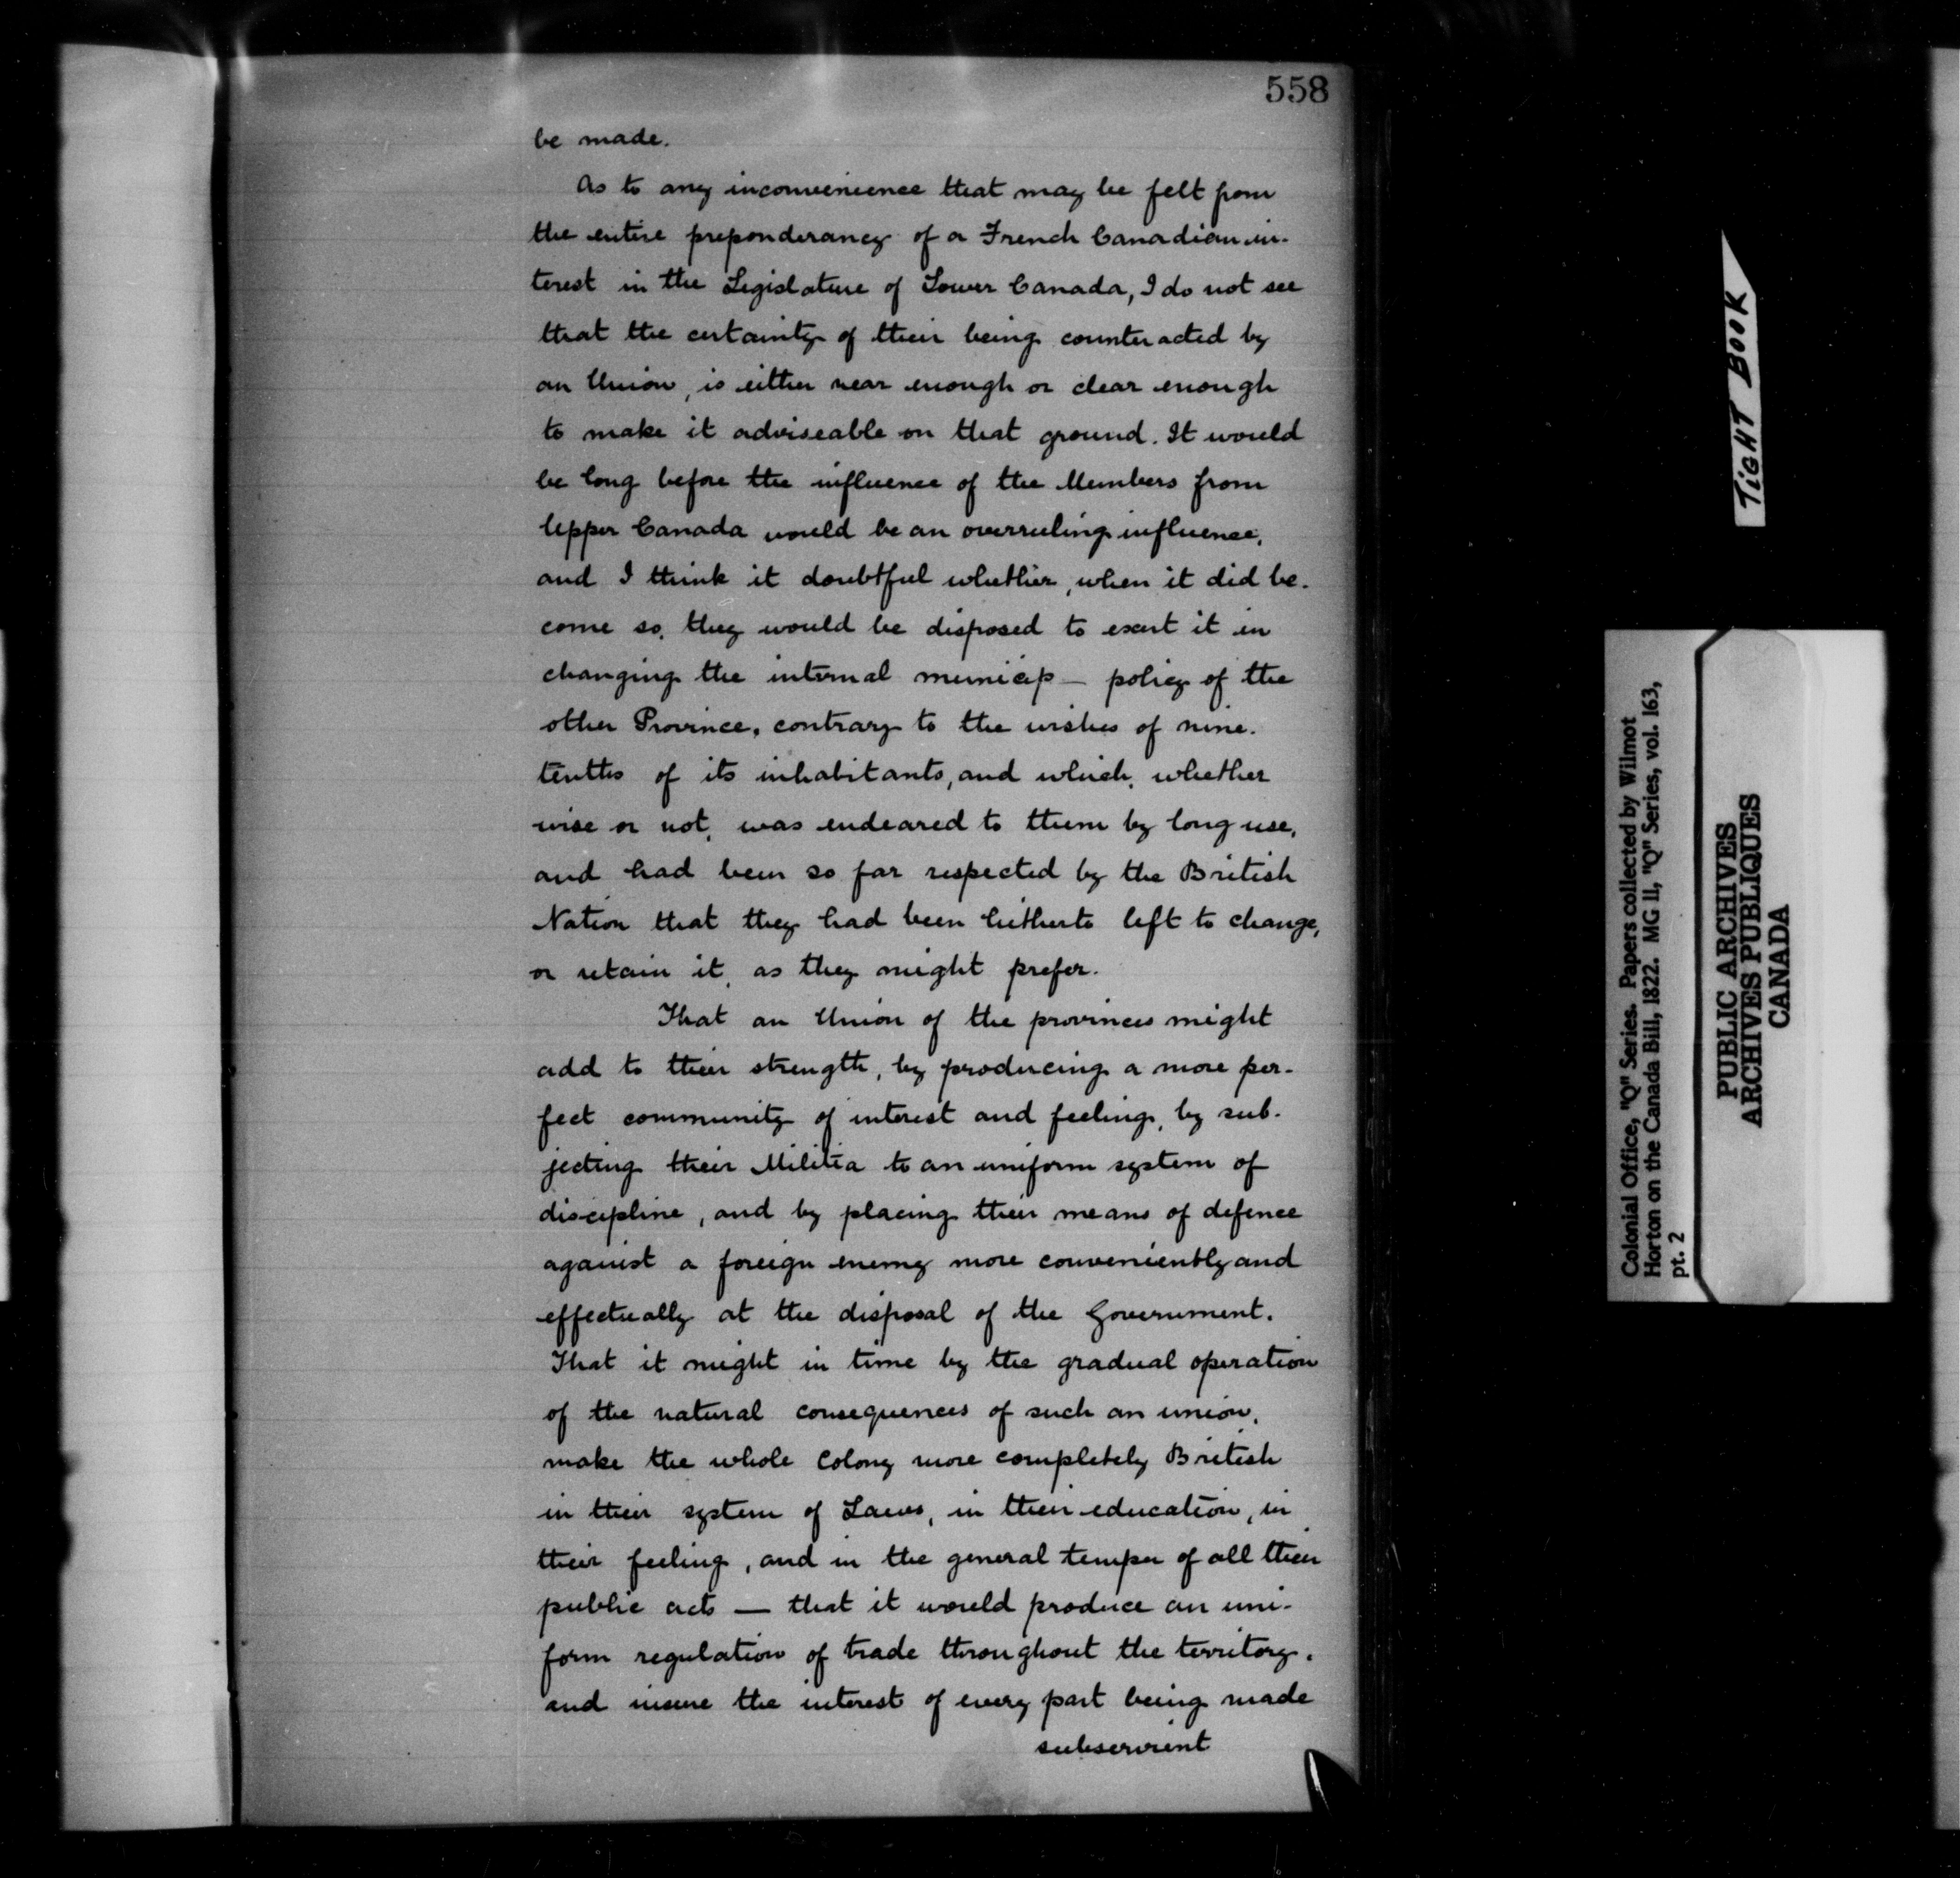 558
be made.
As to any inconvenience that may be felt from
the entire preponderancy of a French Canadian in-
terest in the Legislature of Lower Canada, I do not see
that the certainty of their being counteracted by
an Union, is either near enough or clear enough
to make it adviseable on that ground. It would
be long before the influence of the Members from
Upper Canada would be an overruling influence,
and I think it doubtful whether, when it did be-
come so, they would be disposed to exert it in
changing the internal municip — policy of the
other Province, contrary to the wishes of nine-
tenths of its inhabitants, and which, whether
wise or not, was endeared to them by long use,
and had been so far respected by the British
Nation that they had been hitherto left to change,
or retain it, as they might prefer.
That an Union of the provinces might
add to their strength, by producing a more per-
fect community of interest and feeling, by sub-
jecting their Militia to an uniform system of
discipline, and by placing their means of defence
against a foreign enemy more conveniently and
effectually at the disposal of the Government.
That it might in time by the gradual operation
of the natural consequences of such an union,
make the whole Colony more completely British
in their system of Laws, in their education, in
their feeling, and in the general temper of all their
public acts — that it would produce an uni-
form regulation of trade throughout the territory,
and insure the interest of every part being made
subservient
TIGHT BOOK
Colonial Office, "Q" Series. Papers collected by Wilmot
Horton on the Canada Bill, 1822. MG 11, "Q" Series, vol. 163,
pt. 2
PUBLIC ARCHIVES
ARCHIVES PUBLIQUES
CANADA